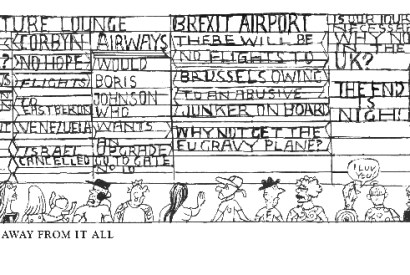 TURE LOUNGE
CORBYN
NO HOPE
FLIGHTS
TO
EAST BERLIN
VENEZUELA
ISRAEL
CANCELLED
AIRWAYS
WOULD
BORIS
JOHNSON
WHO
WANTS
AN
UPGRADE
GO TO GATE
NO 10
BREXIT AIRPORT
THERE WILL BE
NO FLIGHTS TO
BRUSSELS OWING
TO AN ABUSIVE
JUNKER ON BOARD
WHY NOT GET THE
EU GRAVY PLANE?
IS OUR JOUR
NECESSAR
WHY NO
IN THE
UK?
THE END
IS
NIGH!
I LUV
YOU
AWAY FROM IT ALL